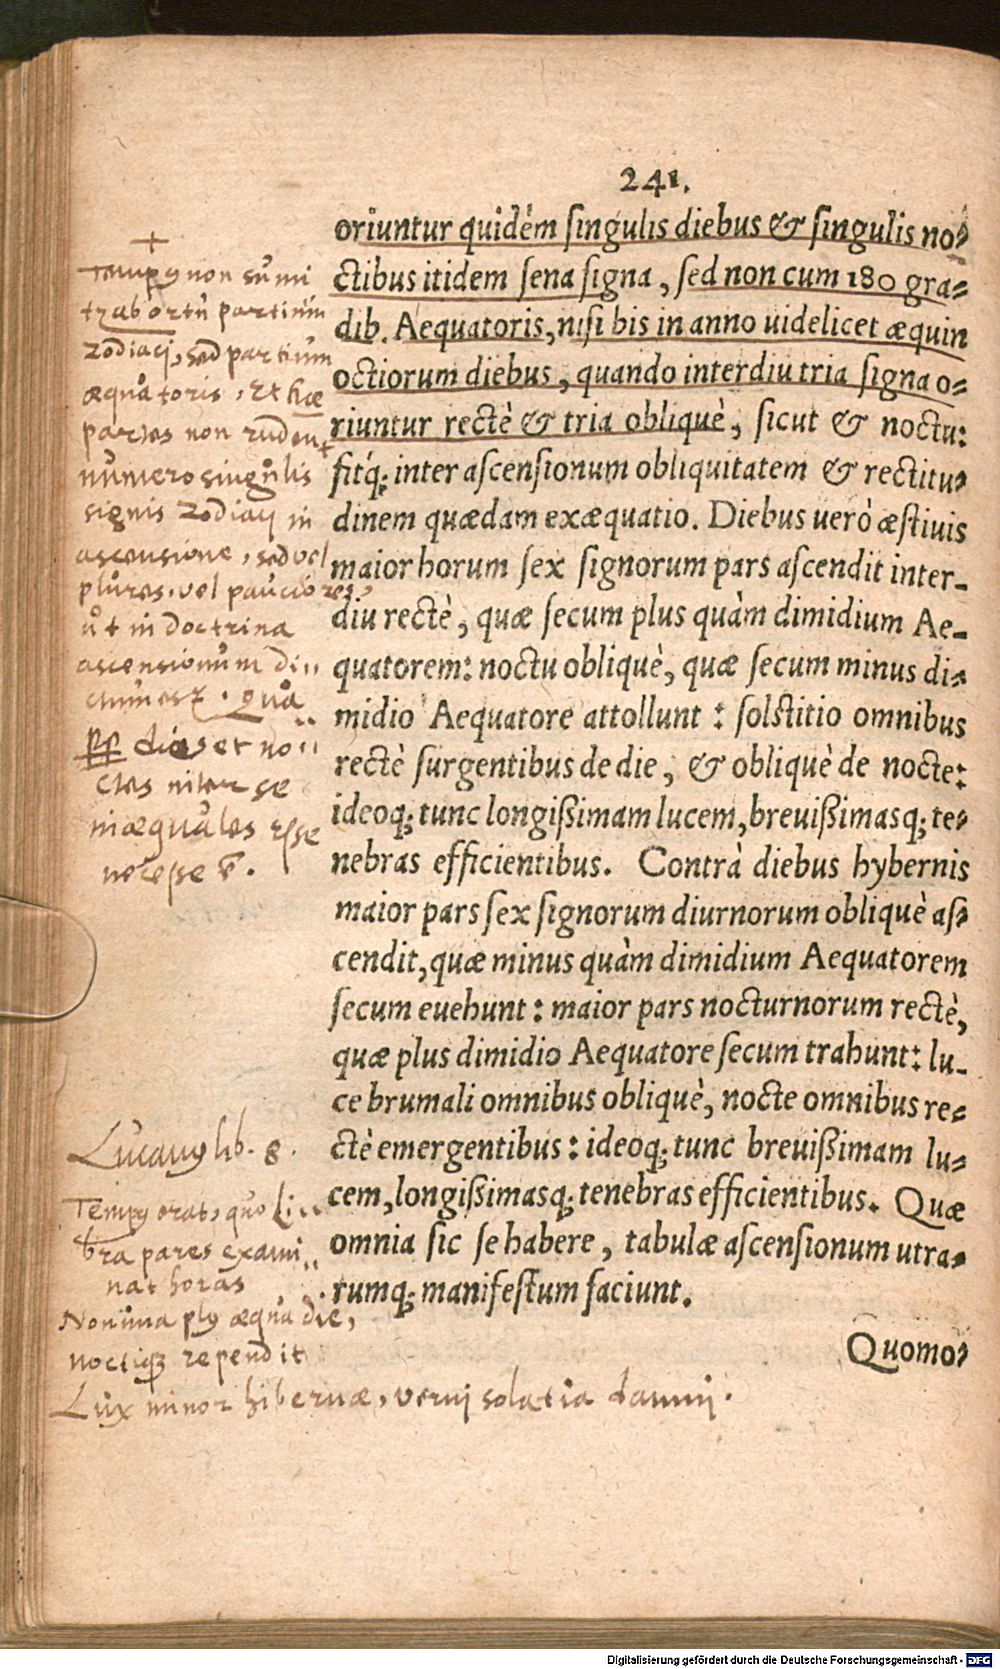 241.
oriuntur quidèm singulis diebus & singulis no⸗
ctibus itidem sena signa, sed non cum 180 gra⸗
dib. Aequatoris, nisi bis in anno uidelicet æquin
octiorum diebus, quando interdiu tria signa o⸗
riuntur rectè & tria obliquè, sicut & noctu:
fitq́; inter ascensionum obliquitatem & rectitu⸗
dinem quædam exæquatio. Diebus uerò æstiuis
maior horum sex signorum pars ascendit inter-
diu rectè, quæ secum plus quàm dimidium Ae-
quatorem: noctu obliquè, quæ secum minus di⸗
midio Aequatore attollunt: solstitio omnibus
rectè surgentibus de die, & obliquè de nocte:
ideoq; tunc longißimam lucem, breuißimasq; te⸗
nebras efficientibus. Contrà diebus hybernis
maior pars sex signorum diurnorum obliquè as⸗
cendit, quæ minus quàm dimidium Aequatorem
secum euehunt: maior pars nocturnorum rectè,
quæ plus dimidio Aequatore secum trahunt: lu-
ce brumali omnibus obliquè, nocte omnibus re⸗
ctè emergentibus: ideoq; tunc breuißimam lu⸗
cem, longißimasq; tenebras efficientibus. Quæ
omnia sic se habere, tabulæ ascensionum utra⸗
rumq; manifestum faciunt.
Quomo⸗
+
Tempꝰ non sumi
tr ab ortu partium
Zodiaci, sed partium
æquatoris, Et hæ
partes non
numero singulis
signis Zodiaci in
ascensione, sed vel
plures, vel pauciores,
ut in doctrina
ascensionum di,,
ctum est. Qua
pp dies et no,,
ctes inter se
inæquales esse
necesse ē.
Lucanꝰ lib. 8.
Tempꝰ erat, quo Li,,
bra pares exami,,
nat horas
Non una plꝰ æqua die,
noctiqꝫ rependit
Lux minor hibernæ, verni solatia damni.
Digitalisierung gefördert durch die Deutsche Forschungsgemeinschaft - DFG